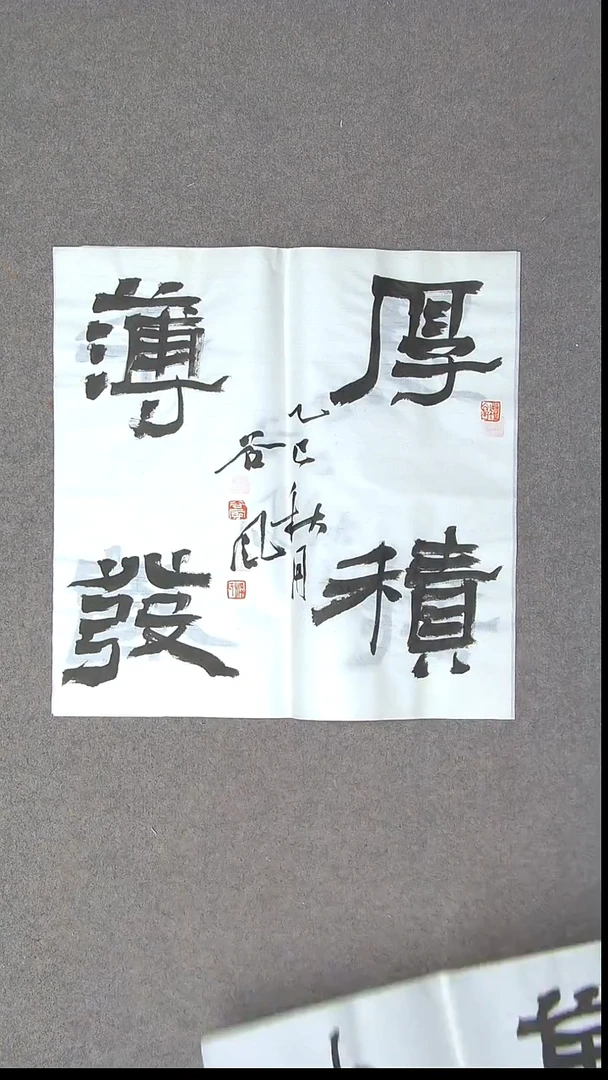 厚積
薄發
乙巳秋月
谷風